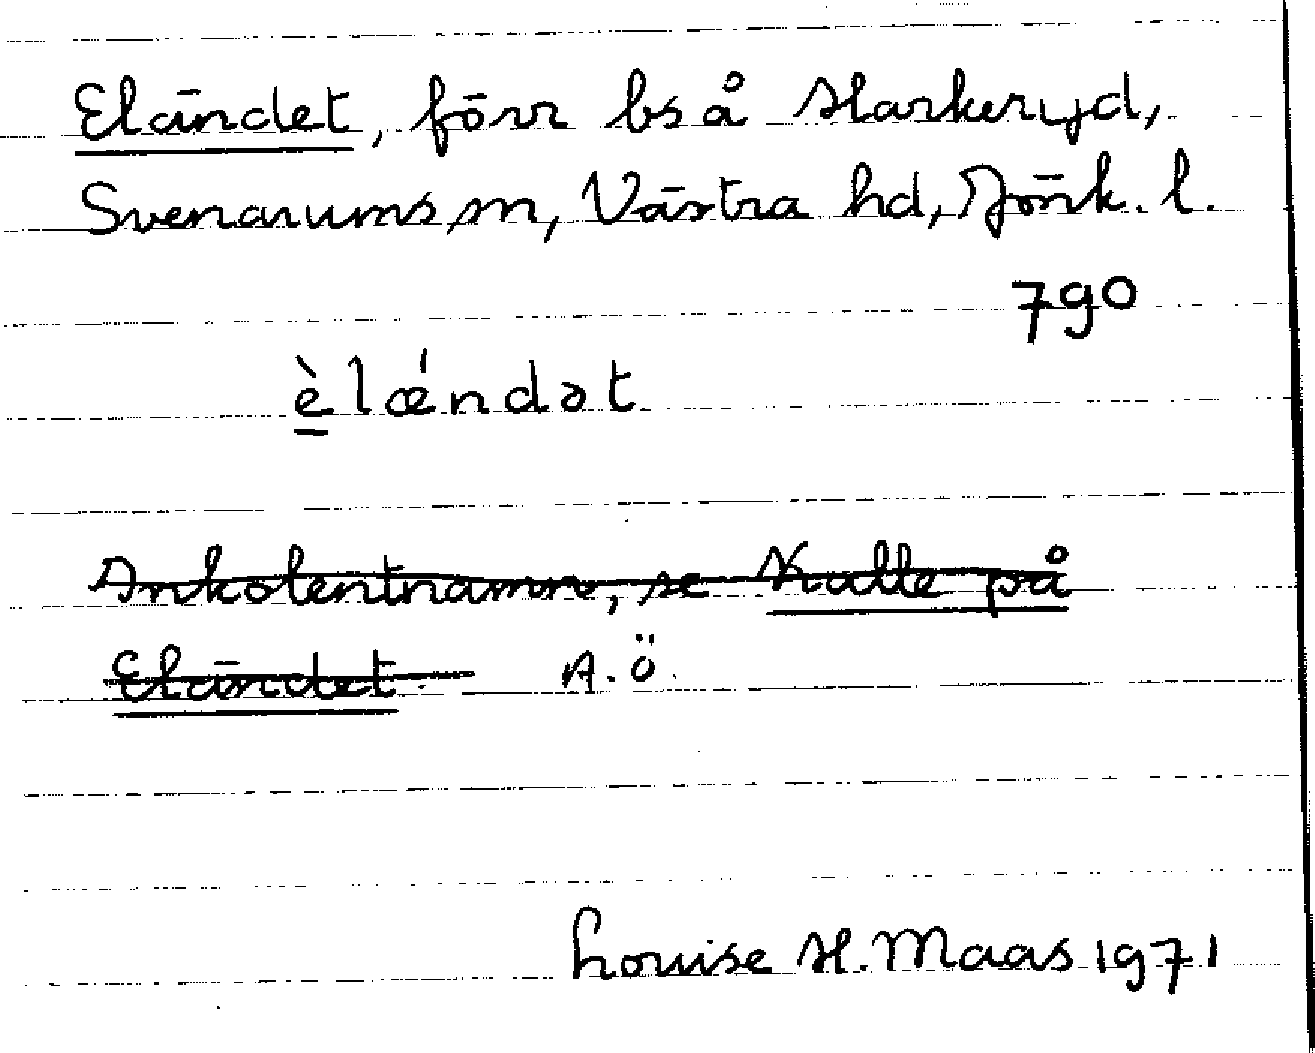 Eländet, förr bs å Harkeryd,
Svenarums sn, Västra hd, Jönk. l.
790
èlǽndət
Inkolentnamn, se Kalle på
Eländet. A.Ö.
Louise H. Maas 1971